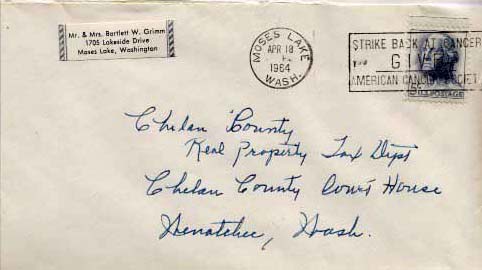 Mr. & Mrs. Bartlett W. Grimm
1705 Lakeside Drive
Moses Lake, Washington
MOSES LAKE
APR 18
1964
WASH.
STRIKE BACK AT CANCER
AMERICAN CANCER SOCIETY
5¢ U.S. POSTAGE
Chelan County
Real Property Tax Dept
Chelan County Court House
Wenatchee, Wash.